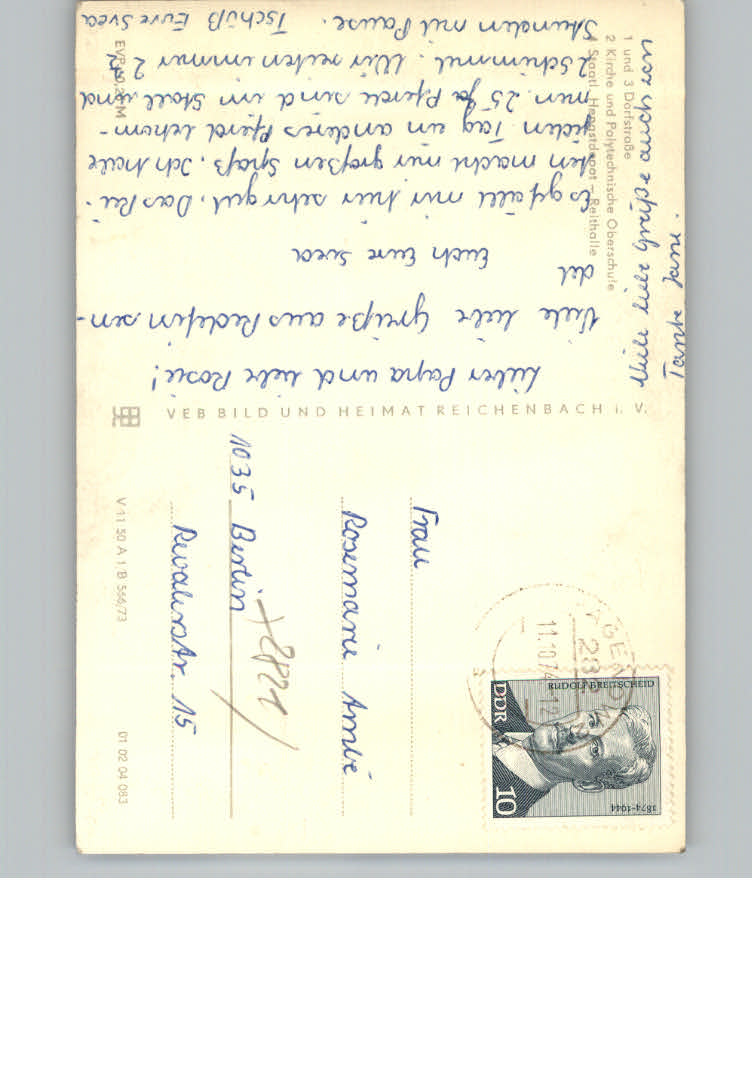 Lieber Papa und liebe Rosie!
Viele liebe Grüße aus Redefin sen-
det
Euch Eure Svea
Es gefällt mir hier sehr gut. Das Rei-
ten macht mir großen Spaß. Ich habe
jeden Tag ein anderes Pferd bekom-
men. 25 Pferde sind im Stall und
2 Schimmel. Wir reiten immer 2
Stunden mit Pause. Tschüß Eure Svea
Viele liebe Grüße auch von
Tante Jane.
1 und 3 Dorfstraße
2 Kirche und Polytechnische Oberschule
4 Staatl. Hengstdepot – Reithalle
VEB BILD UND HEIMAT REICHENBACH i. V.
V 11 50 A 1 B 566/73
01 02 04 083
Frau
Rosemarie Ambé
1035 Berlin
Revalerstr. 15
2821
11.10.74
1874-1944
RUDOLF BREITSCHEID
DDR
10